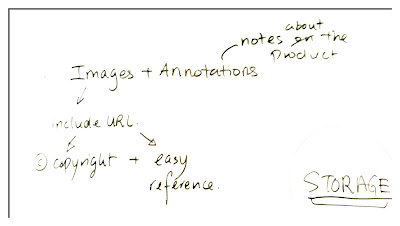 about
notes on the
Product
Images + Annotations
include URL.
copyright + easy
reference.
STORAGE